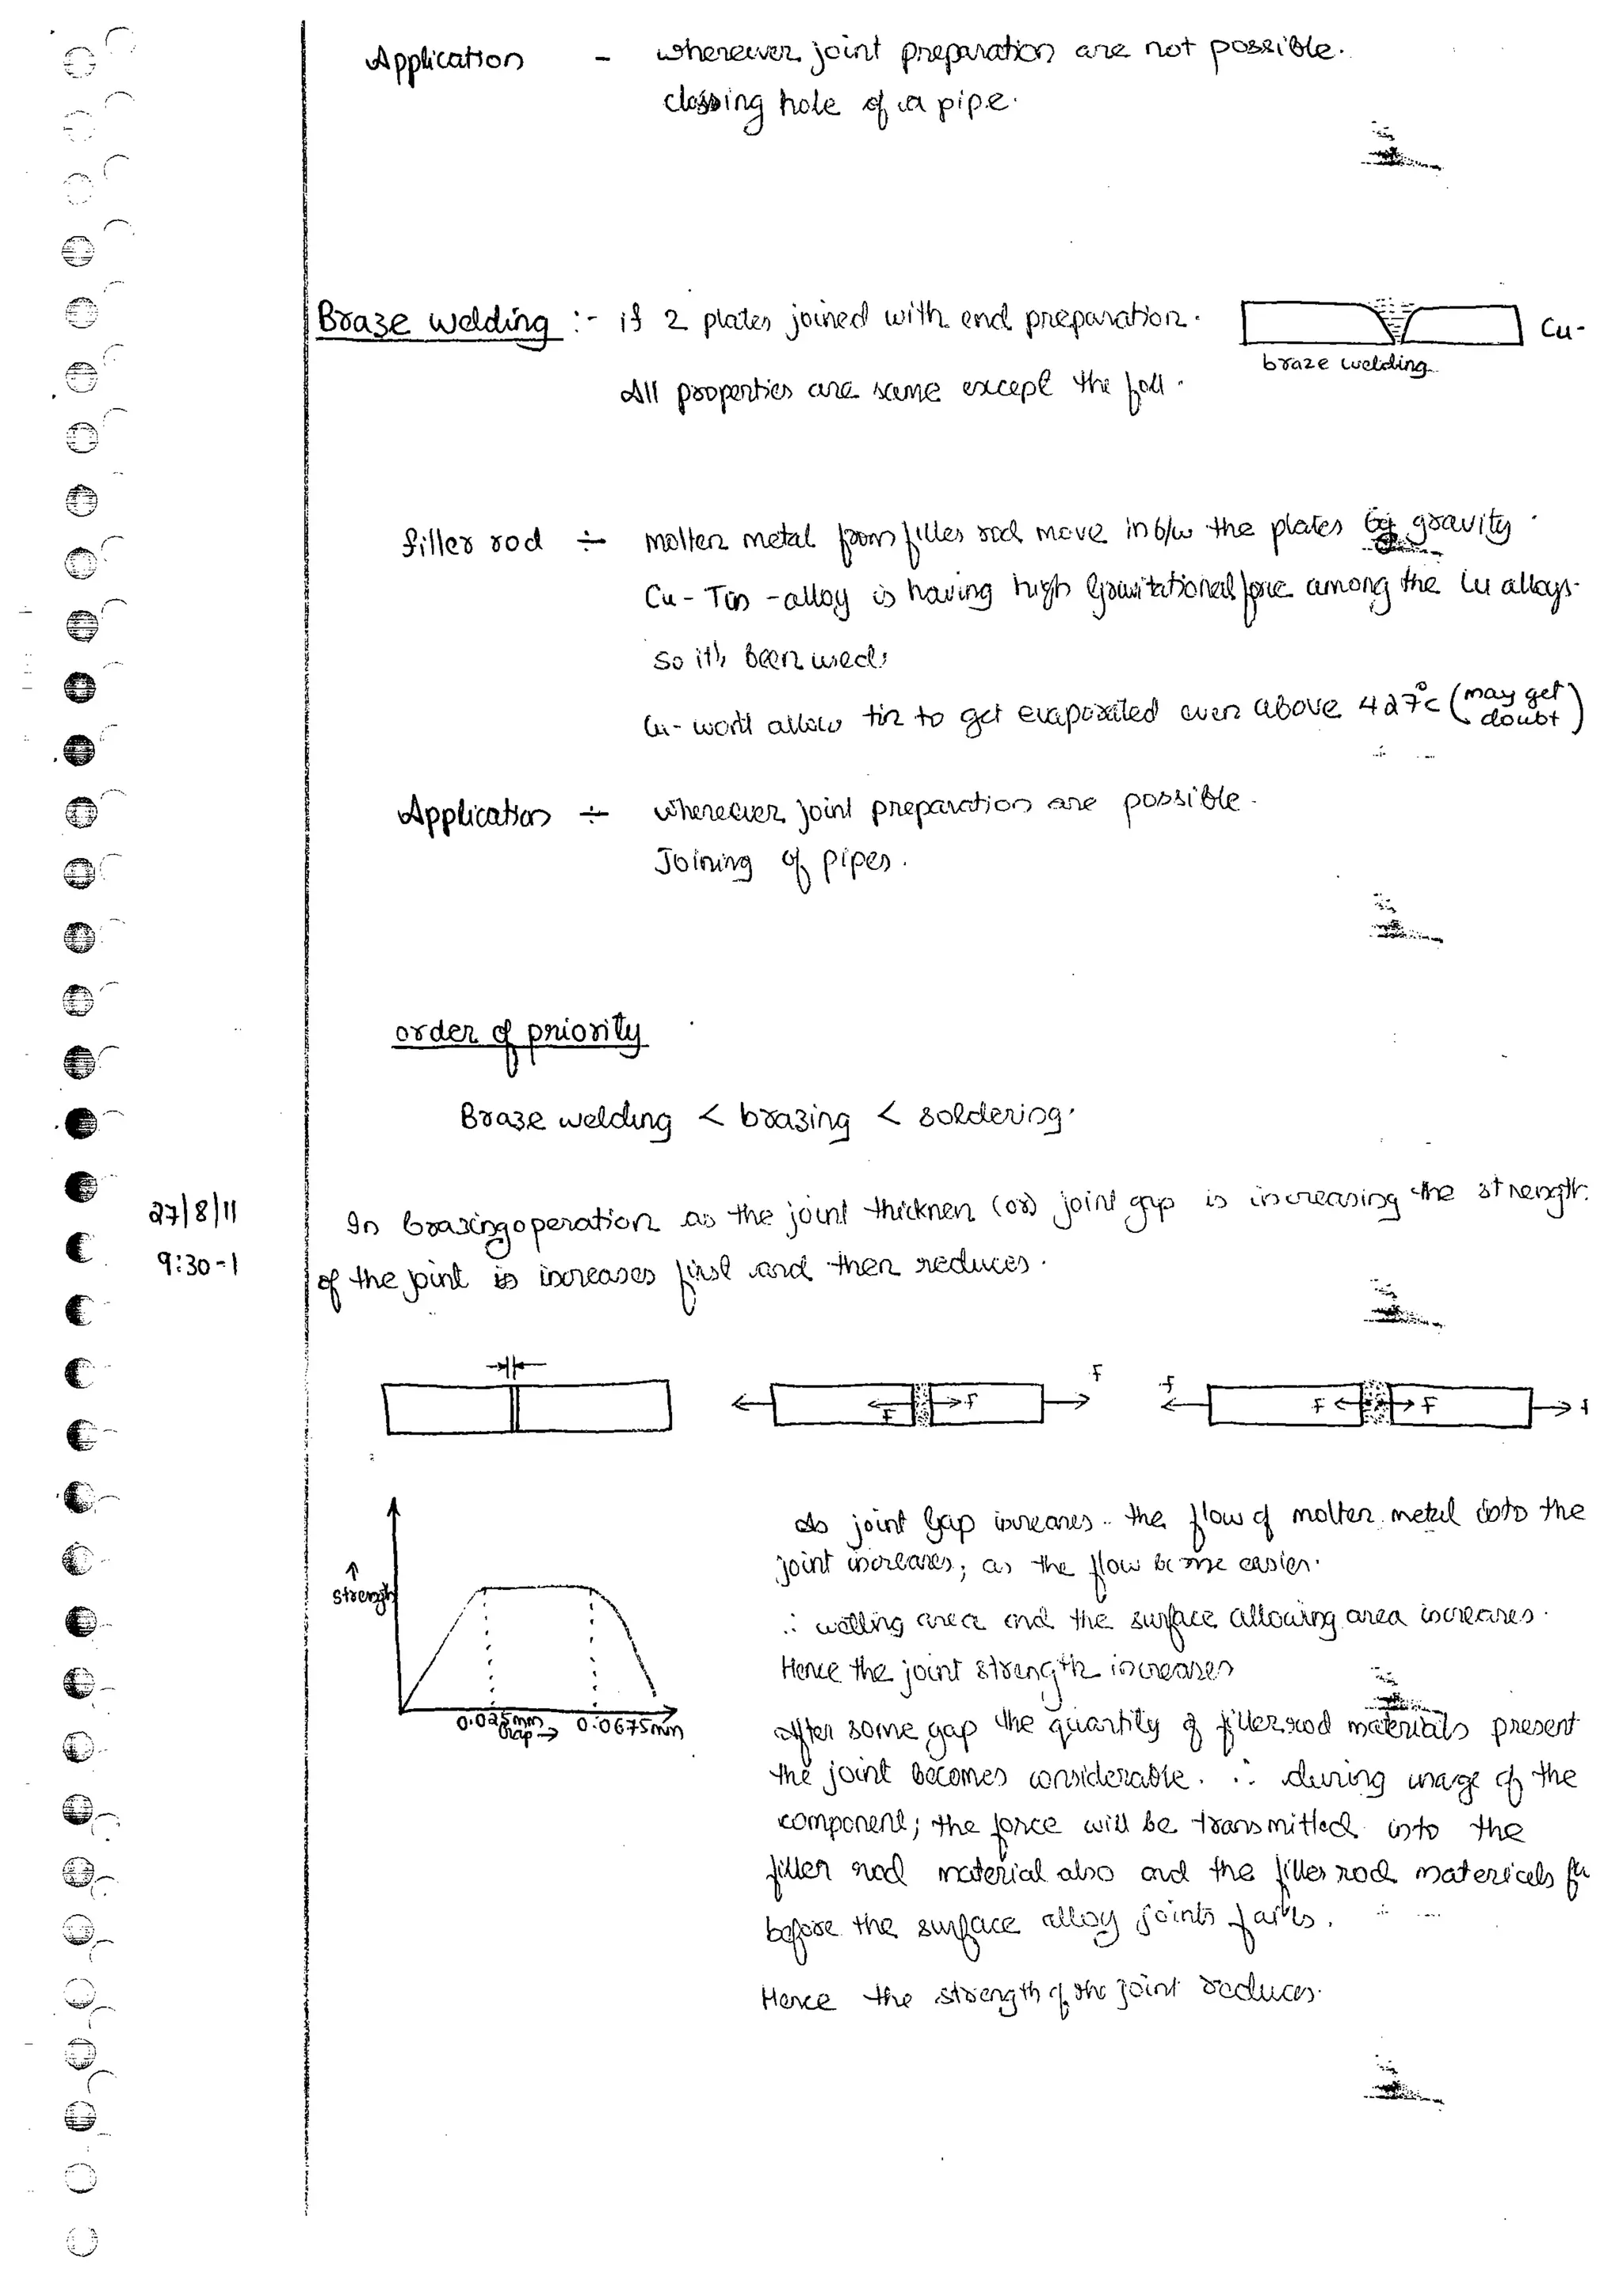 Application - whereever joint preparation are not possible.
closing hole of a pipe.
Braze welding :- if 2 plates joined with end preparation.
Cu-
braze welding
All properties are same except the foll.
filler rod ÷ molten metal from filler rod move in b/w the plates by gravity.
Cu - Tin - alloy is having high Gravitational force among the Cu alloys.
So it's been used.
Cu - won't allow tin to get evaporated even above 427°c (may get doubt)
Application ÷ whereever joint preparation are possible.
Joining of pipes.
order of priority
Braze welding < brazing < soldering.
27/8/11
9:30-1
In brazing operation as the joint thickness (or) joint gap is increasing the strength
of the joint is increases first and then reduces.
f f
F F F F f
As joint Gap increases the flow of molten metal into the
joint increases; as the flow become easier.
↑
strength
∴ wetting area and the surface allowing area increases.
Hence the joint strength increases
0.025mm 0.0675mm
Gap →
After some gap the quantity of filler rod materials present
the joint becomes considerable. ∴ during usage of the
component; the force will be transmitted into the
filler rod material also and the filler rod materials
before the surface alloy joints fails.
Hence the strength of the joint reduces.